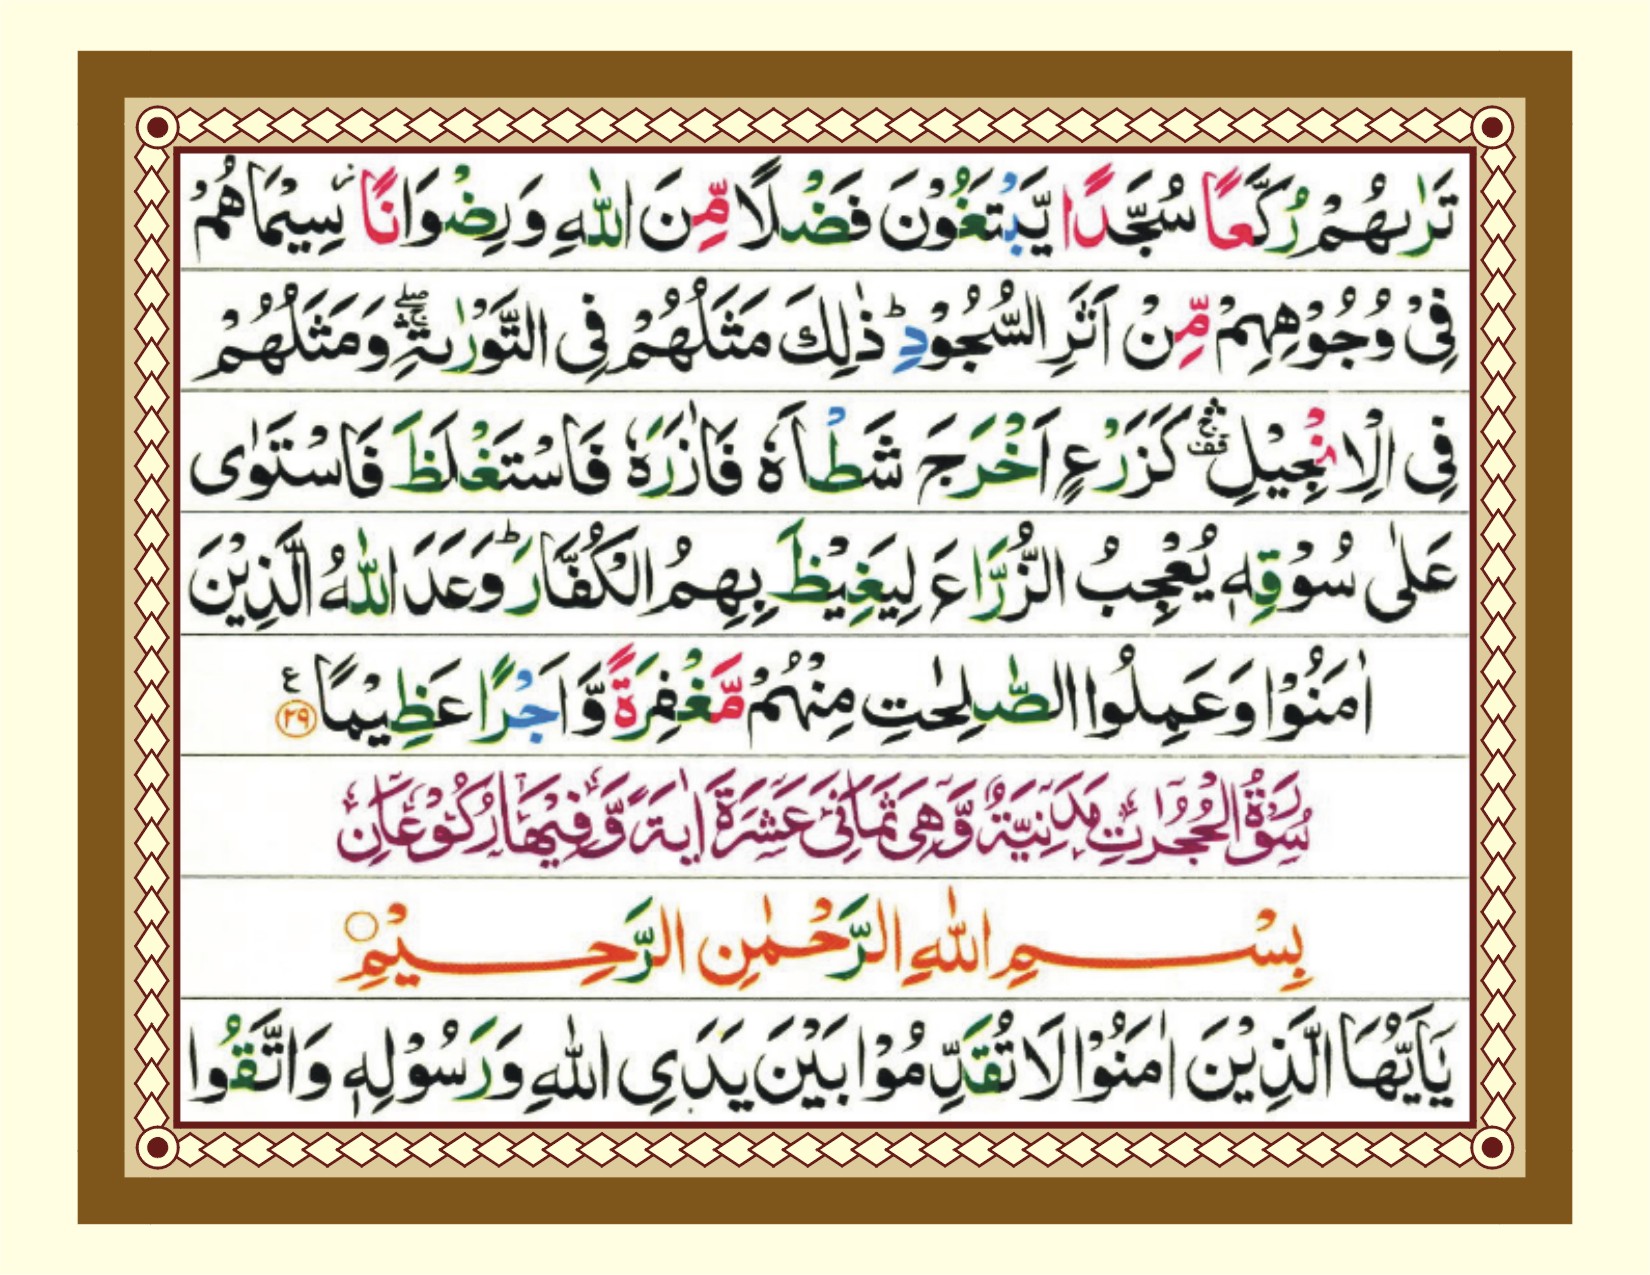 تَرٰىهُمْ رُكَّعًا سُجَّدًا يَّبْتَغُوْنَ فَضْلًا مِّنَ اللّٰهِ وَرِضْوَانًا ؗ سِيْمَاهُمْ
فِيْ وُجُوْهِهِمْ مِّنْ اَثَرِ السُّجُوْدِ ؕ ذٰلِكَ مَثَلُهُمْ فِى التَّوْرٰىةِ ۛۖۚ وَمَثَلُهُمْ
فِى الْاِنْجِيْلِ ۛۚ قف كَزَرْعٍ اَخْرَجَ شَطْاَهٗ فَاٰزَرَهٗ فَاسْتَغْلَظَ فَاسْتَوٰى
عَلٰى سُوْقِهٖ يُعْجِبُ الزُّرَّاعَ لِيَغِيْظَ بِهِمُ الْكُفَّارَ ؕ وَعَدَ اللّٰهُ الَّذِيْنَ
اٰمَنُوْا وَعَمِلُوا الصّٰلِحٰتِ مِنْهُمْ مَّغْفِرَةً وَّاَجْرًا عَظِيْمًا ع ۲۹
سُوْرَةُ الْحُجُرٰتِ مَدَنِيَّةٌ وَّهِىَ ثَمَانِىَ عَشْرَةَ اٰيَةً وَّفِيْهَا رُكُوْعَانِ
بِسْمِ اللّٰهِ الرَّحْمٰنِ الرَّحِيْمِ ○
يٰۤاَيُّهَا الَّذِيْنَ اٰمَنُوْا لَا تُقَدِّمُوْا بَيْنَ يَدَىِ اللّٰهِ وَرَسُوْلِهٖ وَاتَّقُوا